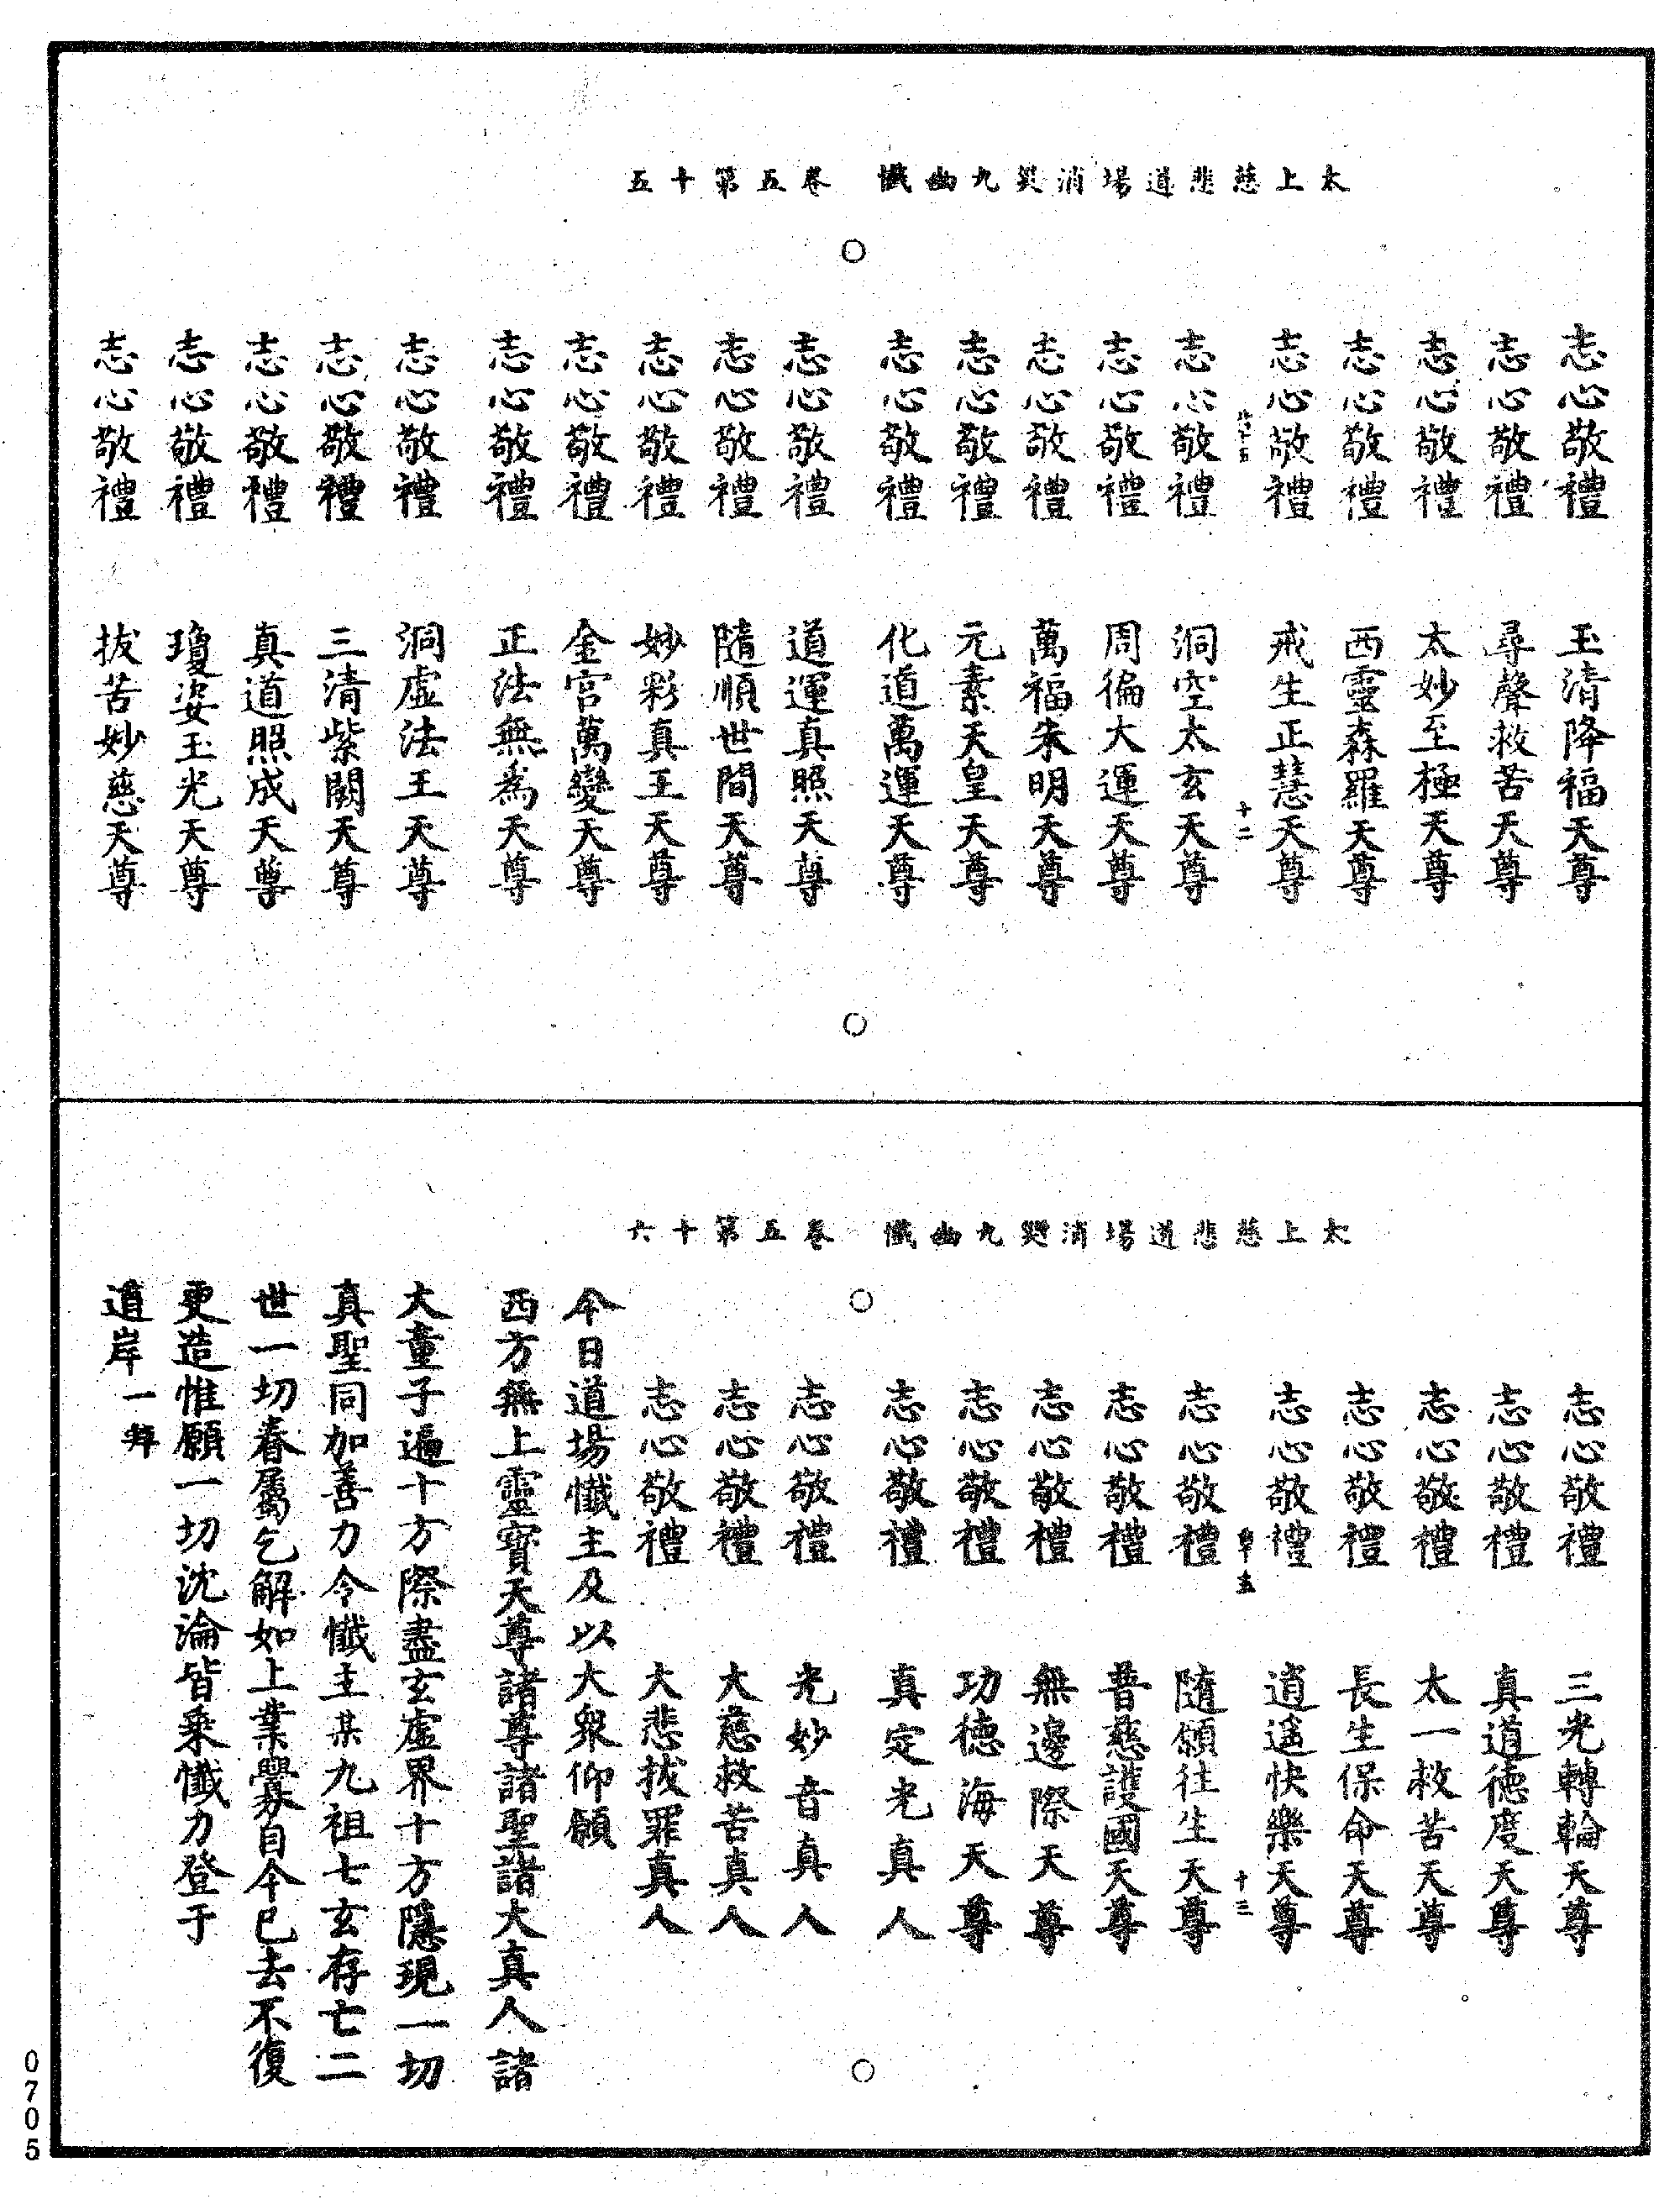 太上慈悲道場消災九幽懺　卷五第十五
志心敬禮　玉清降福天尊
志心敬禮　尋聲救苦天尊
志心敬禮　太妙至極天尊
志心敬禮　西靈森羅天尊
志心敬禮　戒生正慧天尊
十二
志心敬禮　洞空太玄天尊
志心敬禮　周徧大運天尊
志心敬禮　萬福朱明天尊
志心敬禮　元素天皇天尊
志心敬禮　化道萬運天尊
志心敬禮　道運真照天尊
志心敬禮　隨順世間天尊
志心敬禮　妙彩真王天尊
志心敬禮　金宮萬變天尊
志心敬禮　正法無為天尊
志心敬禮　洞虛法王天尊
志心敬禮　三清紫闕天尊
志心敬禮　真道照成天尊
志心敬禮　瓊姿玉光天尊
志心敬禮　拔苦妙慈天尊
太上慈悲道場消災九幽懺　卷五第十六
志心敬禮　三光轉輪天尊
志心敬禮　真道德度天尊
志心敬禮　太一救苦天尊
志心敬禮　長生保命天尊
志心敬禮　逍遥快樂天尊
十三
志心敬禮　隨願往生天尊
志心敬禮　普慈護國天尊
志心敬禮　無邊際天尊
志心敬禮　功德海天尊
志心敬禮　真定光真人
志心敬禮　光妙音真人
志心敬禮　大慈救苦真人
志心敬禮　大悲拔罪真人
今日道場懺主及以大衆仰願
西方無上靈寶天尊諸尊諸聖諸大真人諸
大童子遍十方際盡玄虛界十方隱現一切
真聖同加善力令懺主某九祖七玄存亡二
世一切眷屬乞解如上業釁自今已去不復
更造惟願一切沈淪皆乘懺力登于
道岸一拜
0705